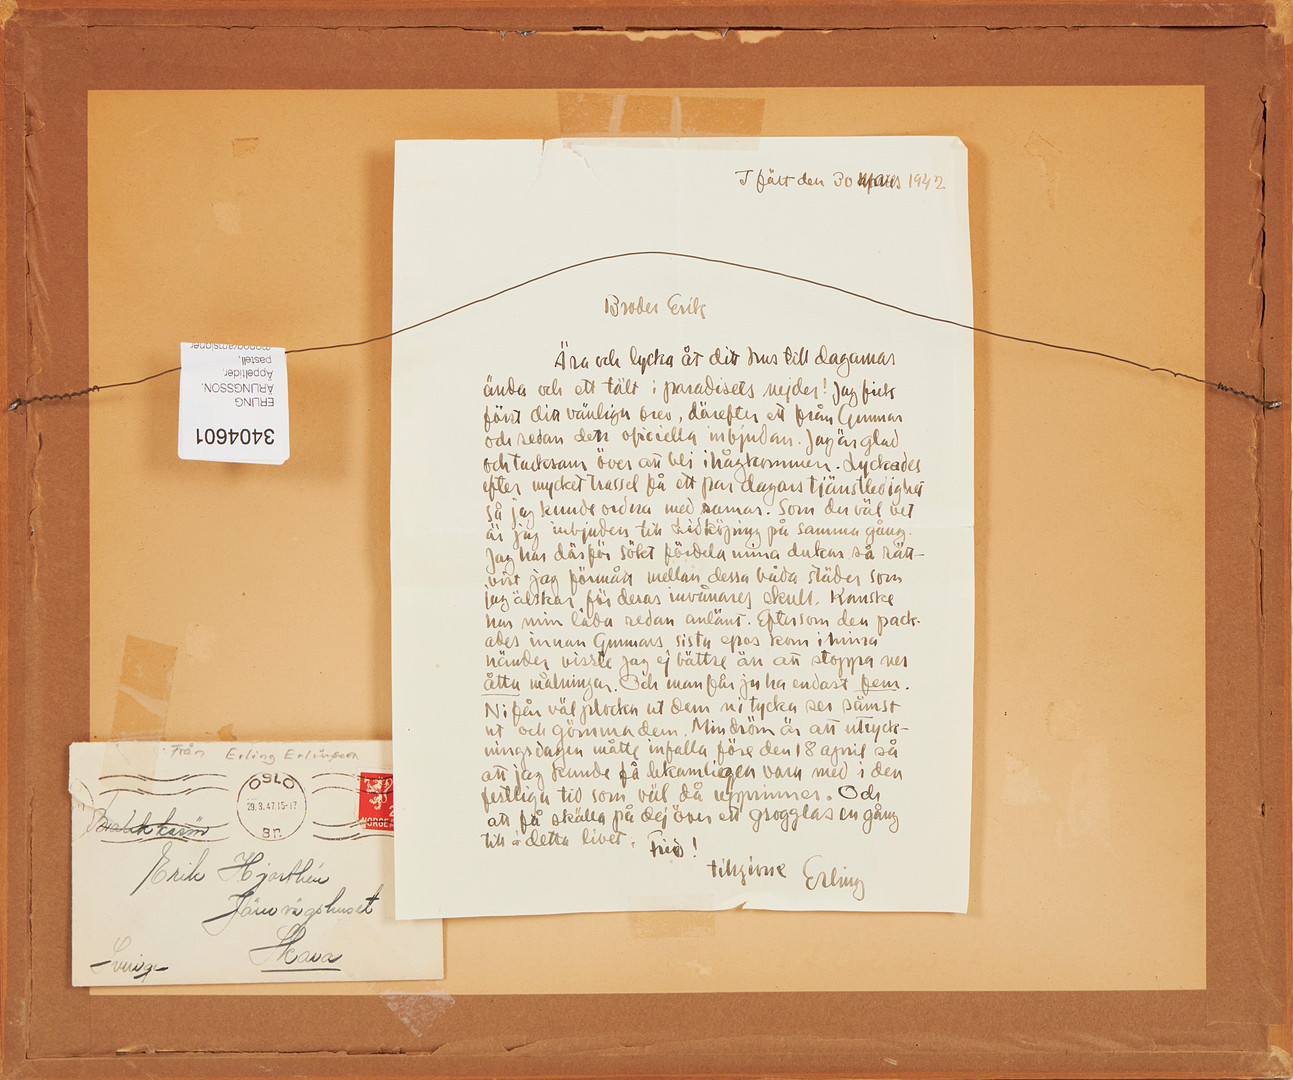 I fält den 30 mars 1942
Broder Erik
Ära och lycka åt ditt hus till dagarnas
ända och ett tält i paradisets nejder! Jag fick
först ditt vänliga brev, därefter ett från Gunnar
och sedan den officiella inbjudan. Jag är glad
och tacksam över att bli ihågkommen. Lyckades
efter mycket trassel få ett par dagars tjänstledighet
så jag kunde ordna med ramar. Som du väl vet
är jag inbjuden till Lidköping på samma gång.
Jag har därför sökt fördela mina dukar så rätt-
vist jag förmått mellan dessa båda städer som
jag älskar för deras invånares skull. Kanske
har min låda redan anlänt. Eftersom den pack-
ades innan Gunnars sista epos kom i mina
händer visste jag ej bättre än att stoppa ner
åtta målningar. Och man får ju ha endast fem.
Ni får väl plocka ut dem ni tycka ser sämst
ut och gömma dem. Min dröm är att utryck-
ningsdagen måtte infalla före den 18 april så
att jag kunde få lekamligen vara med i den
festliga tid som väl då upprinner. Och
att få skålla på dej över ett grogglas en gång
till i detta livet. Frid!
tillgivne Erling
3404601
ERLING
ÄRLINGSSON.
Äppeltider,
pastell,
monogramsigner
Från Erling Erlingsson
OSLO
29.3.47.15-17
BR.
NORGE
Erik Hjorthén
Järnvägshuset
Skara
Sverige